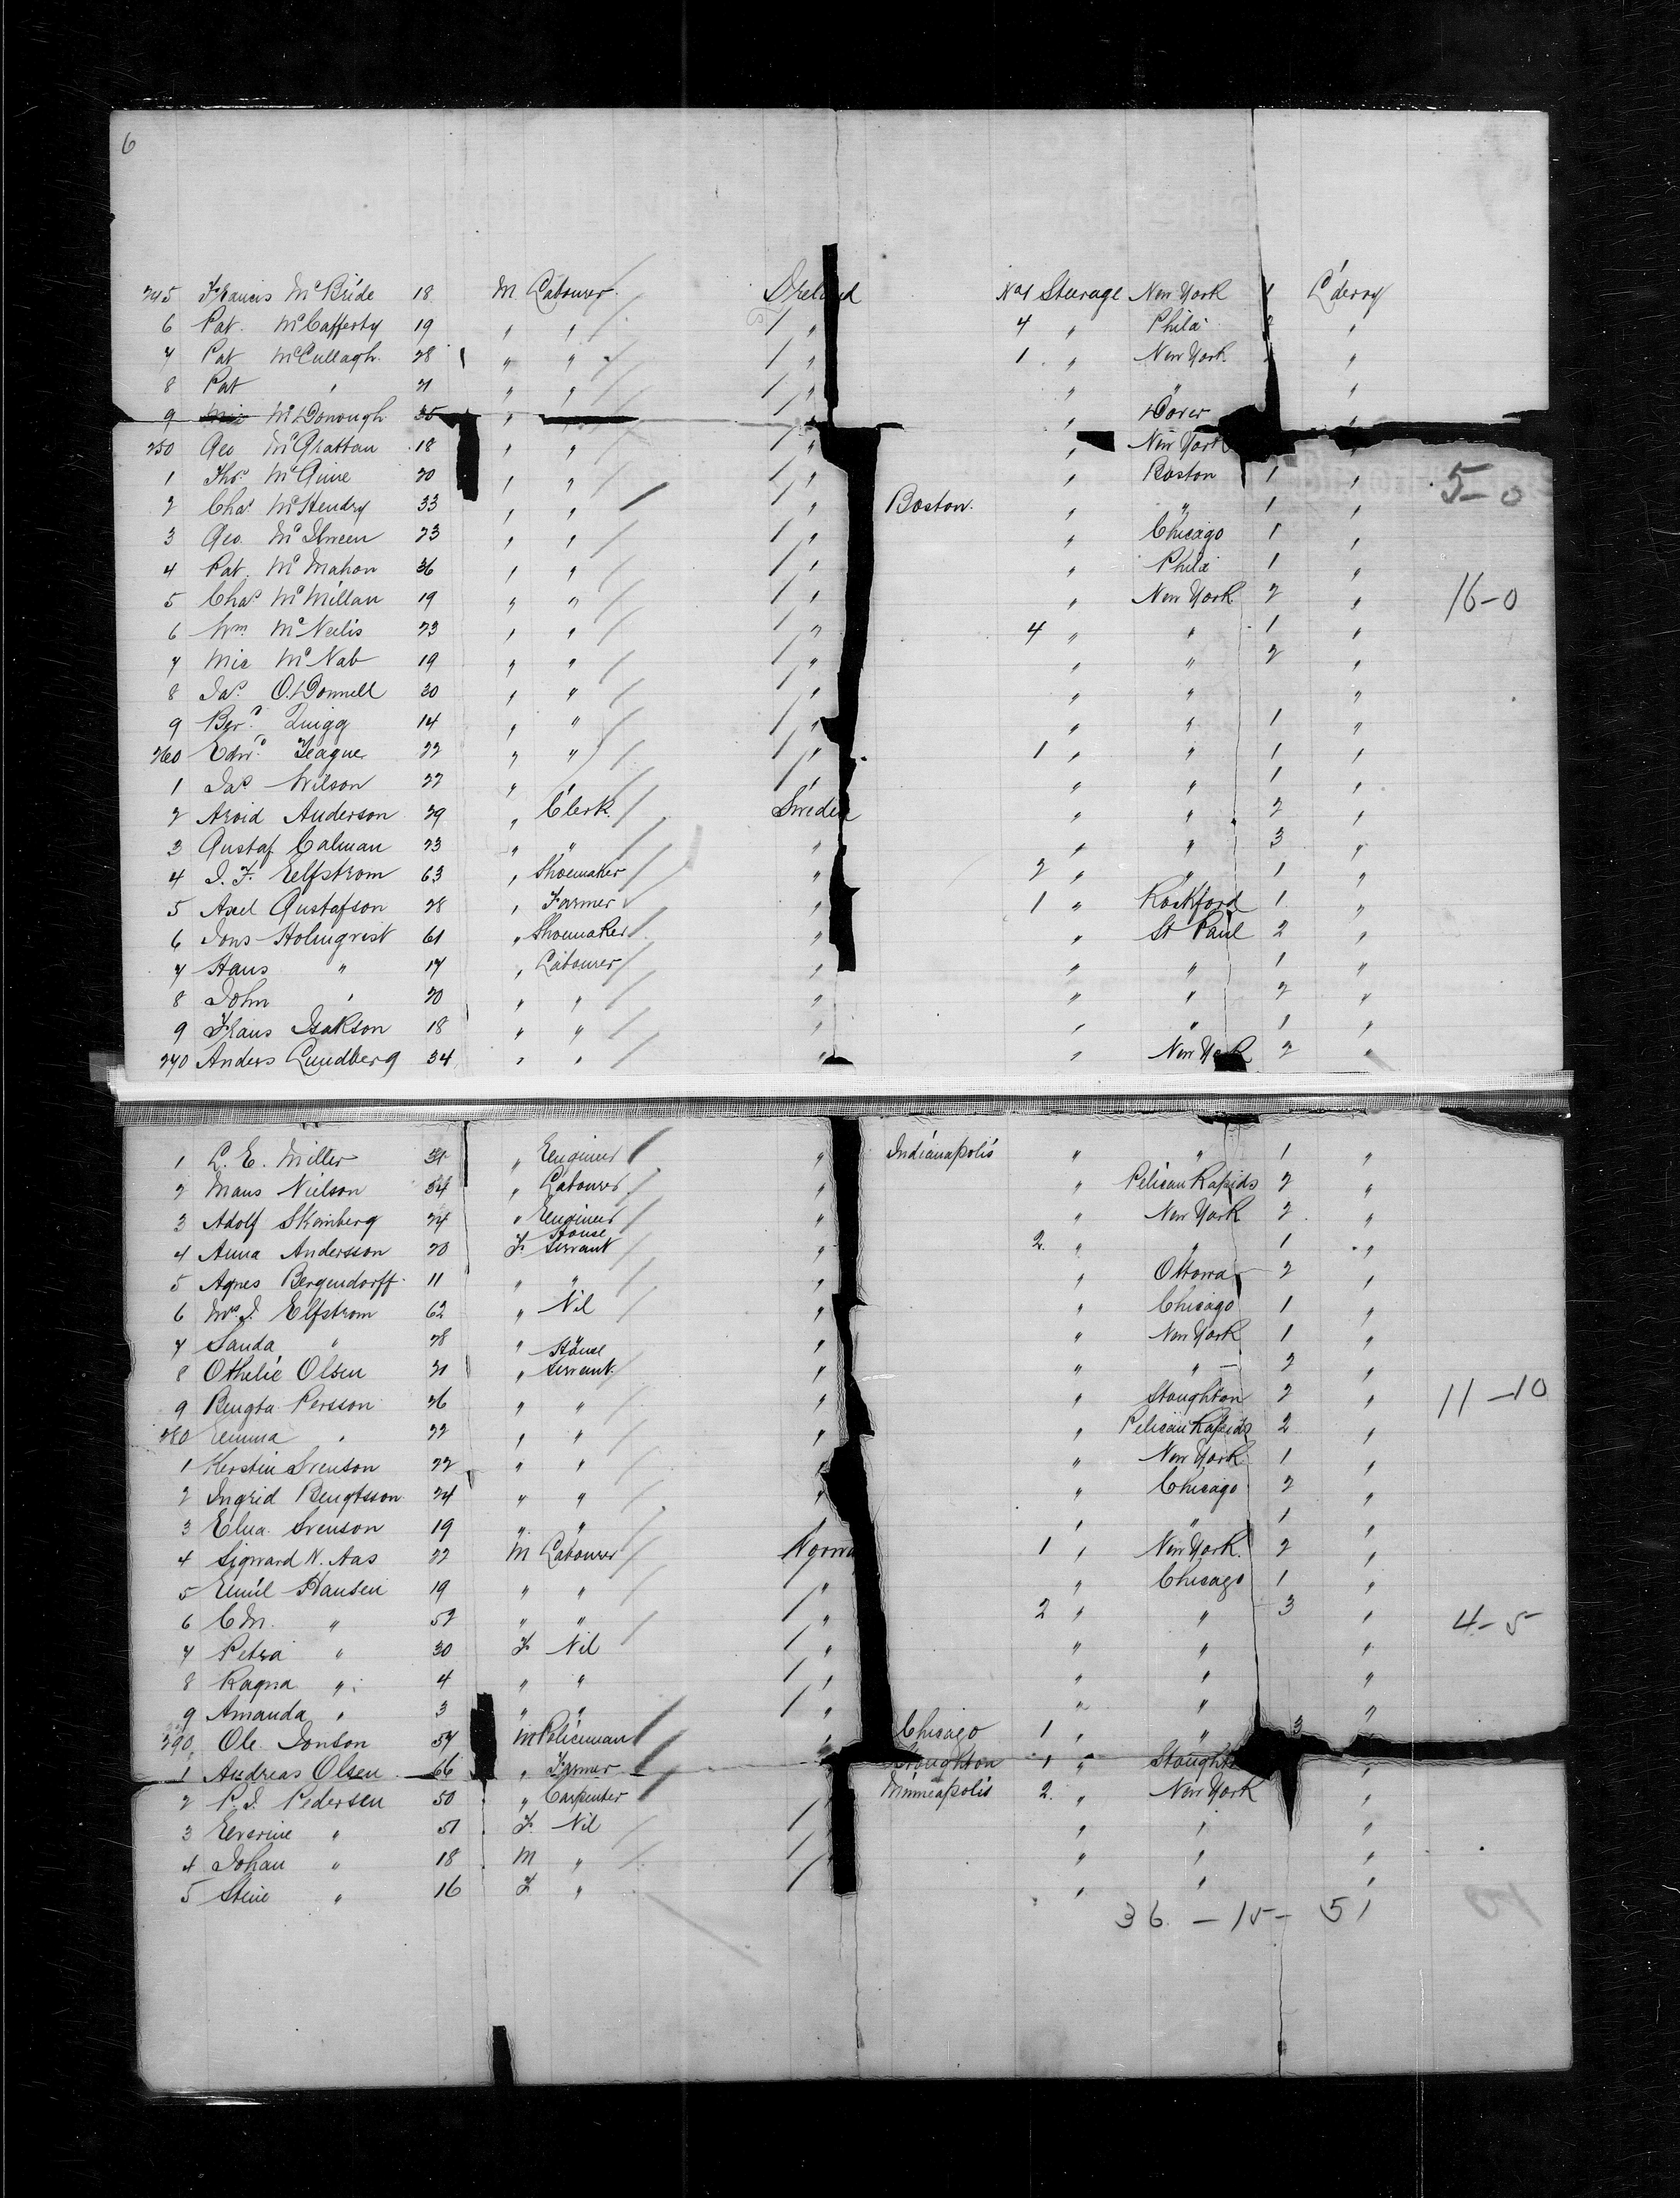 6
245 Francis McBride 18 M Labourer Ireland No 1 Steerage New York 1 L'derry
6 Pat. McCafferty 19 " " " 4 " Phila "
7 Pat McCullagh 28 " " " 1 " New York "
8 Pat " 21 " " " " " "
9 McDonough 35 " " Dover "
250 Geo McGrattan 18 " " " " New York "
1 Thos 20 " " " " Boston 1 "
2 Chas McHendry 33 " " " Boston. " " 1 " 5-0
3 Geo. 23 " " " " Chicago 1 "
4 Pat. McMahon 36 " " " " Phila 1 "
5 Chas McMillan 19 " " " " New York 2 " 16-0
6 Wm McNeilis 23 " " " 4 " " 1 "
7 Mic McNab 19 " " " " " 2 "
8 Jas. O'Donnell 20 " " " " " "
9 Berd Quigg 14 " " " " " 1 "
260 Edwd Teague 22 " " " 1 " " 1 "
1 Jas Wilson 22 " " " " 1 "
2 Arvid Anderson 29 " Clerk Sweden " " 2 "
3 Gustaf Calman 23 " " " " " 3 "
4 J. F. Eelfstrom 63 " Shoemaker " 2 " " 1 "
5 Axel Gustafson 28 " Farmer " 1 " Rockford 1 "
6 Jons Holmqvist 61 " Shoemaker " " St Paul 2 "
7 Hans " 17 " Labourer " " " 1 "
8 John " 20 " " " " " 2 "
9 Frans Isakson 18 " " " " " 1 "
270 Anders Lundberg 34 " " " " New York 2 "
1 L. E. Miller 31 " Engineer " Indianapolis " " 1 "
2 Mans Nielson 54 " Labourer " " Pelican Rapids 2 "
3 Adolf Skamberg 24 " Engineer " " New York 2 "
4 Anna Andersson 20 F House Servant " 2 " " 1 "
5 Agnes Bergendorff 11 " " " " Ottowa 2 "
6 Mrs J. Elfstrom 62 " Nil " " Chicago 1 "
7 Sanda " 28 " " " New York 1 "
8 Othelie Olsen 21 " House Servant " " " 2 "
9 Bengta Persson 26 " " " " Stoughton 2 " 11-10
280 Emma " 22 " " " " Pelican Rapids 2 "
1 Kerstin Svenson 22 " " " " New York 1 "
2 Ingrid Bengtsson 24 " " " " Chicago 2 "
3 Elna Svenson 19 " " " " " 1 "
4 Sigward N. Aas 22 M Labourer Norwa 1 " New York 2 "
5 Emil Hansen 19 " " " " Chicago 1 "
6 C M. " 52 " " " 2 " " 3 " 4-5
7 Petra " 30 F Nil " " " "
8 Ragna " 4 " " " " " "
9 Amanda " 3 " " " " " "
290 Ole Jonson 57 M Policeman " Chicago 1 " " 3 "
1 Andreas Olsen 66 " Farmer Stoughton 1 " Stoughto "
2 P. J. Pedersen 50 " Carpenter " Minneapolis 2 " New York "
3 Eeverine " 51 F Nil " " " "
4 Johan " 18 M " " " " "
5 Stine " 16 F " " " "
36 - 15 - 51